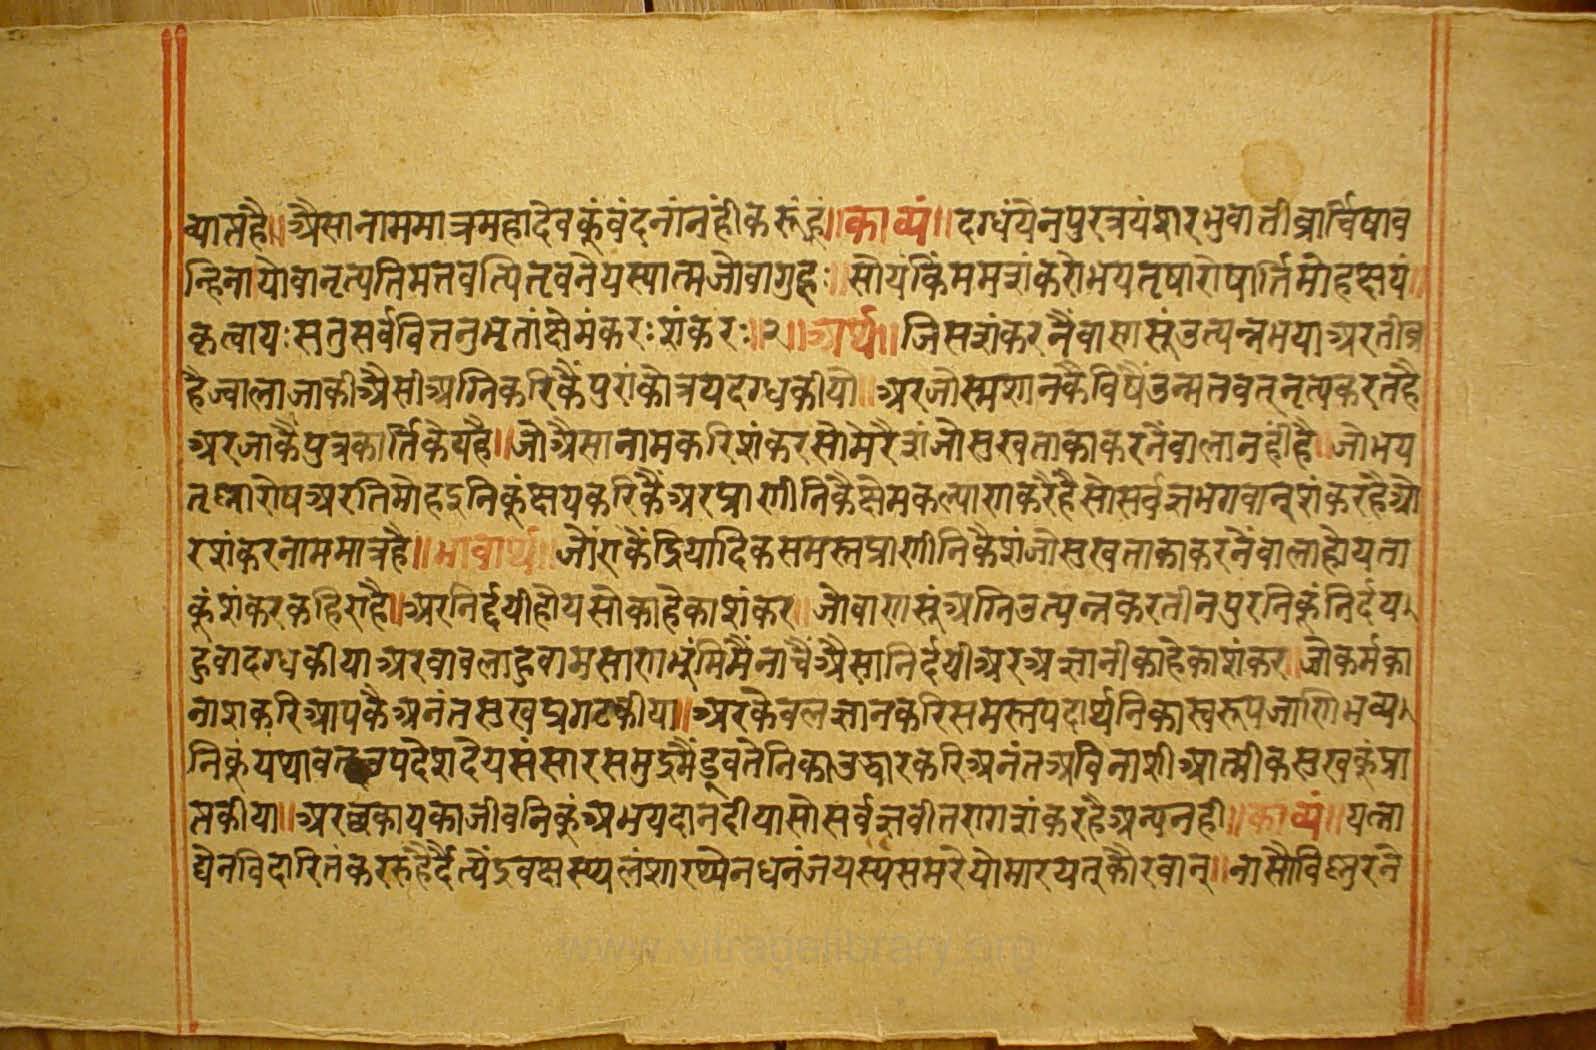 व्याप्तहै॥ अैसानाममात्रमहादेवकुंवंदनांनंहीकरूंहूं॥ काव्यं॥ दग्धंयेनपुरत्रयंशरभुवातीव्रार्चिषाव
न्हिनायोवानृत्यतिमत्तवत्पितृवनेयस्यात्मजोवागुहः॥ सोयंकिंममशंकरोभयतृषारोषार्त्तिमोहक्षयं॥
कृत्वायःसतुसर्ववित्तनुभृतांक्षेमंकरःशंकरः॥२॥ अर्थ॥ जिसशंकरनैंवाणसूंउत्पन्नभयाअरतीव्र
हैज्वालाजाकीअैसीअग्निकरिकैंपुरांकोत्रयदग्धकीयो॥ अरजोस्मशानकैविषैंउन्मतवत्नृत्यकरतहै
अरजाकैपुत्रकार्त्तिकेयहै॥ जोअैसानामकरिशंकरसोमेरैशंजोसुखताकाकरनैवालानंहींहै॥ जोभय
तृष्णारोषअरतिमोहइनिकुंक्षयकरिकैंअरप्राणीनिकैक्षेमकल्याणकरैहैसोसर्वज्ञभगवान्शंकरहैओ
रशंकरनाममात्रहै॥ भावार्थ॥ जोंएकेंद्रियादिकसमस्तप्राणीनिकैशंजोसुखताकाकरनैंवालाहोयता
कुंशंकरकहिएहै॥ अरनिर्द्दयीहोयसोकाहेकाशंकर॥ जोवाणसुंअग्निउत्पन्नकरतीनपुरनिकुंनिर्दय
हुवादग्धकीयाअरवावलाहुवामसाणभुंमिमैंनाचैंअैसानिर्दयीअरअज्ञानीकाहेकाशंकर॥ जोकर्मका
नाशकरिआपकैअनंतसुखप्रगटकीया॥ अरकेवलज्ञानकरिसमस्तपदार्थनिकास्वरूपजाणिभव्य
निकुंयथावतउपदेशदेयसंसारसमुद्रमैंडूवतेनिकाउद्धारकरिअनंतअविनाशीआत्मीकसुखकुंप्रा
प्तकीया॥ अरछकायकाजीवनिकुंअभयदानदीयासोसर्वज्ञवीतरागशंकरहैअन्यनही॥ काव्यं॥ यत्ना
द्येनविदारितंकररुहैर्दैत्येंद्रवक्षस्थलंशारथ्येनधनंजयस्यसमरेयोमारयत्कौरवान्॥ नासौविष्णुरने